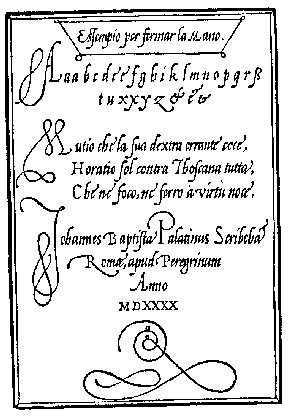 Essempio per fermar la Mano.
A a a b c d e e f g h i k l m n o p q r ß
t u x x y z & & &
Mutio che la sua dextra errante coce,
Horatio sol contra Thoscana tutta,
Che ne foco, ne ferro à virtù noce.
Iohannes Baptista Palatinus Scribebat
Romæ, apud Peregrinum
Anno
MDXXXX